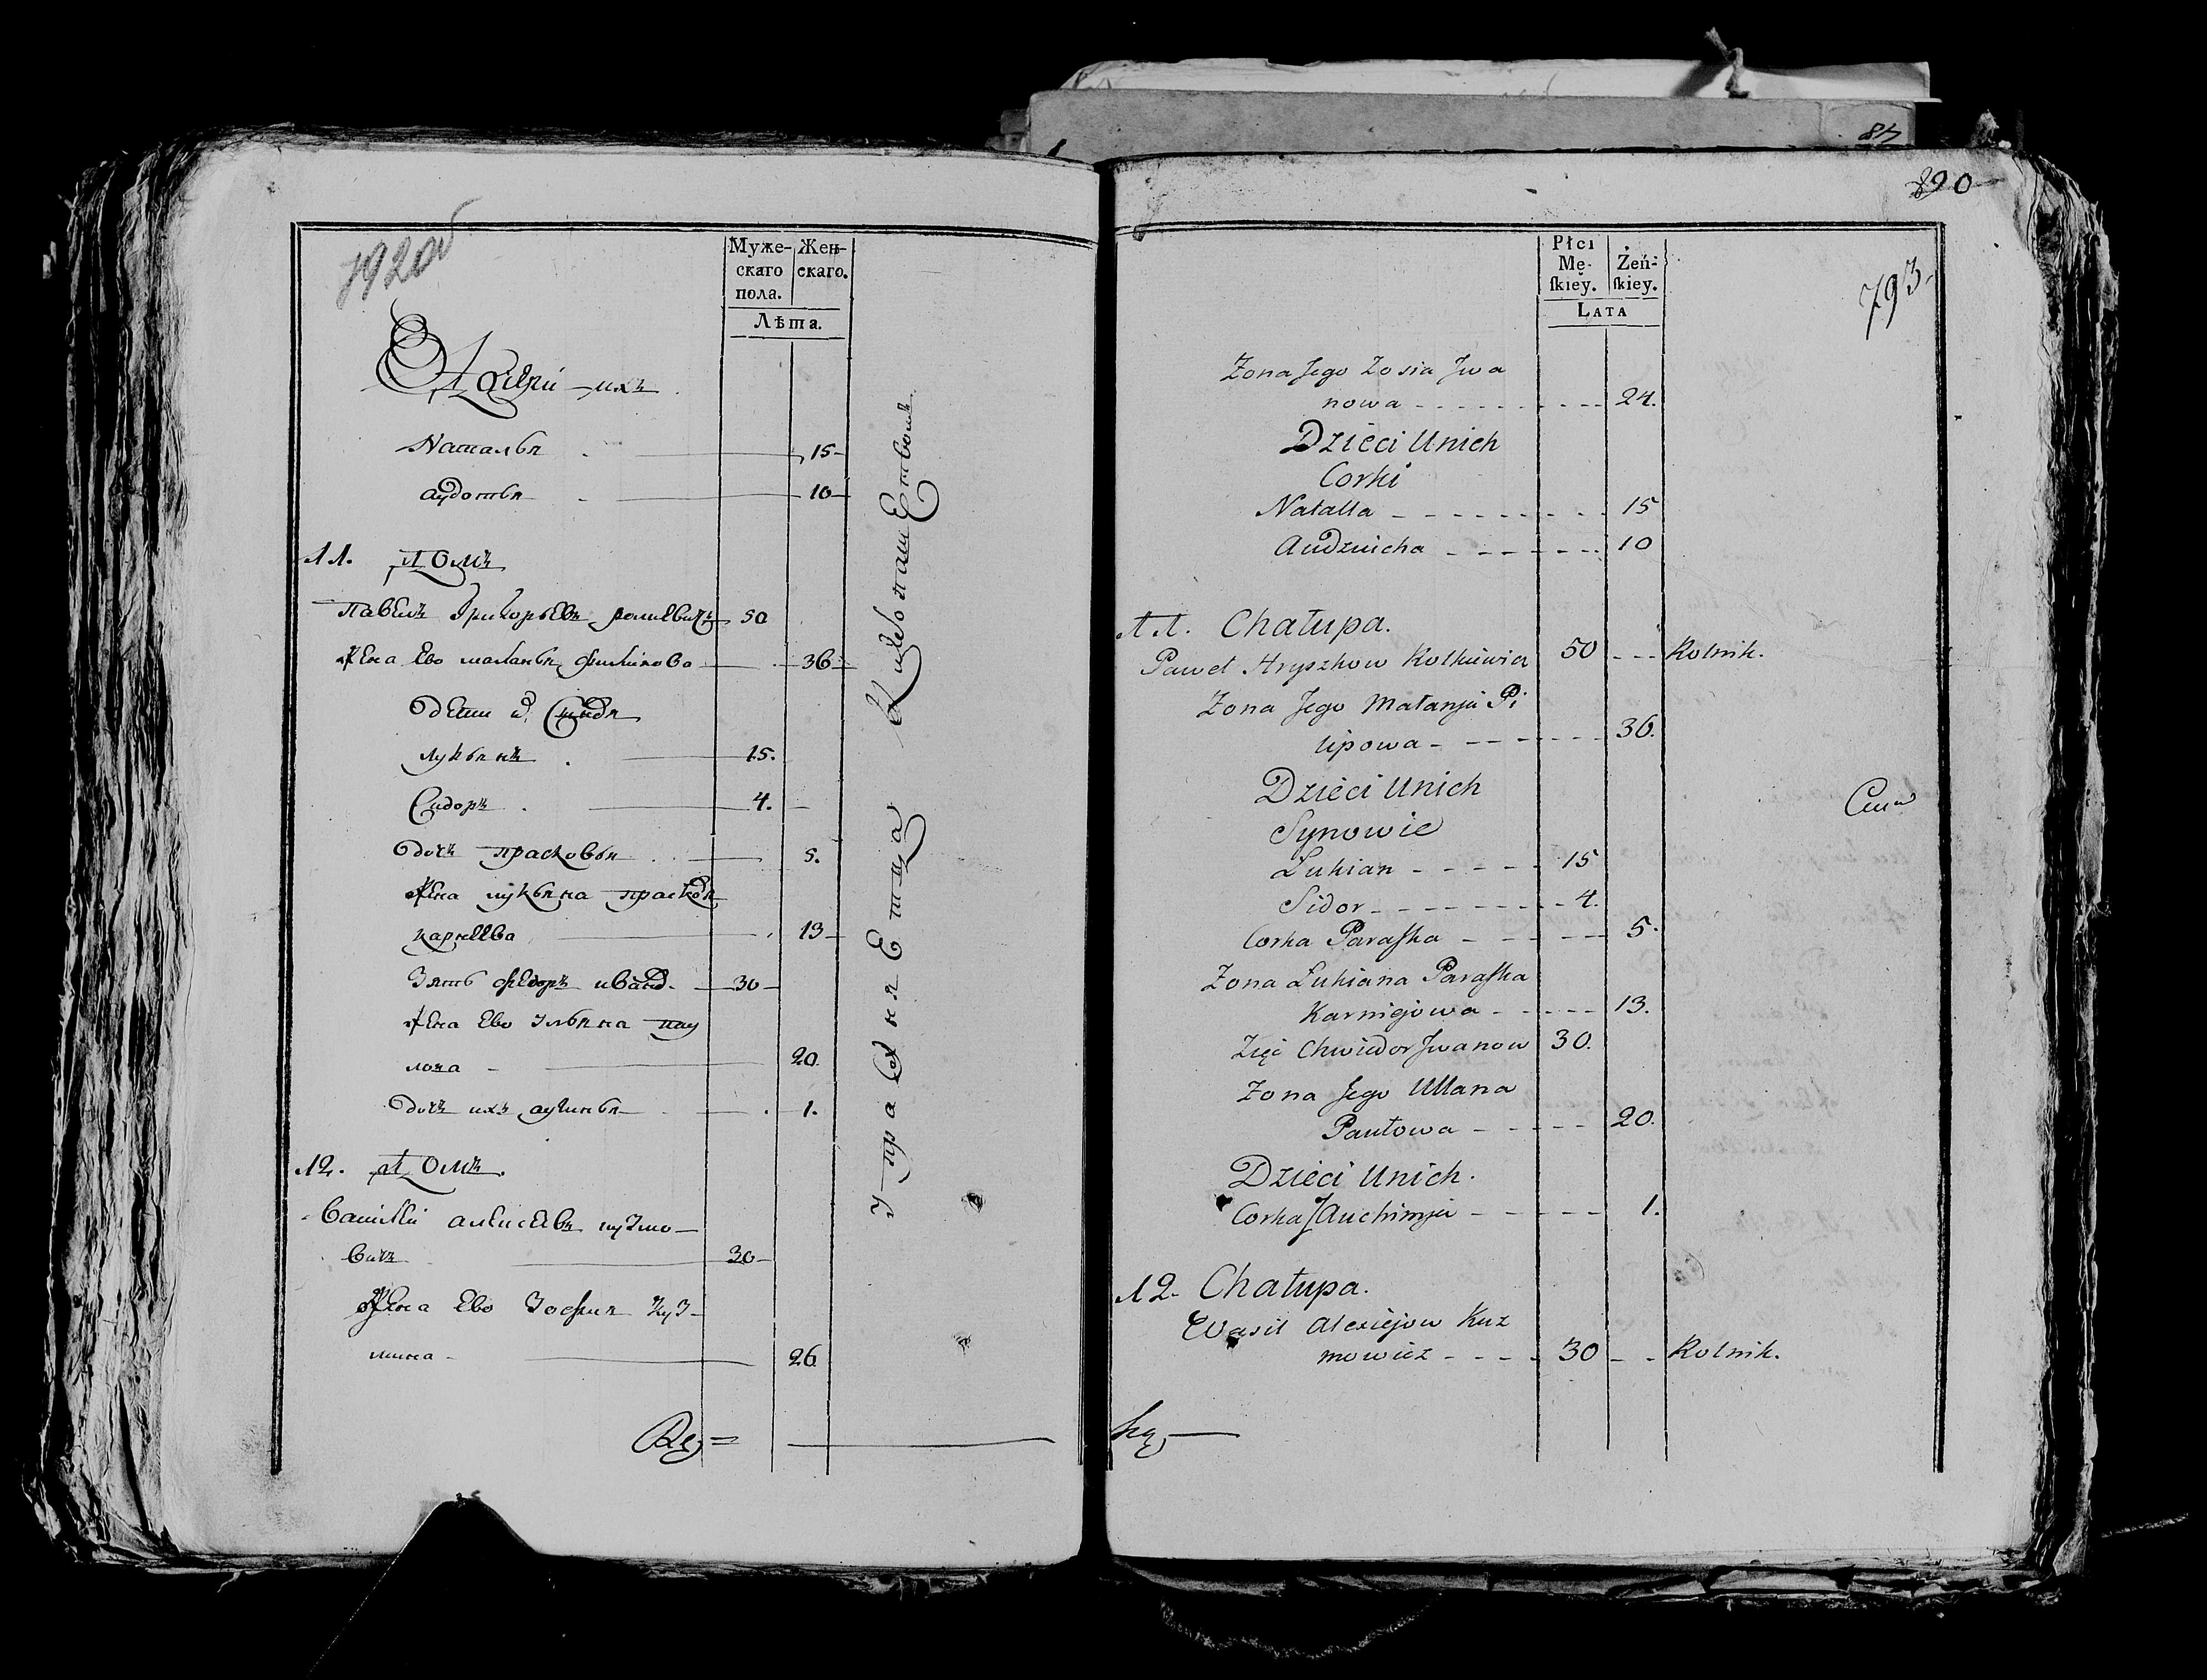 792об
Муже-
скаго
пола.
Жен-
скаго.
Лѣта.
ихъ
Наталья 15
аудотья 10
11. домъ
павелъ Григорьевъ 50
жена Ево маланья филипова 36
дети
лукьянъ 15.
Сидоръ 4.
дочь прасковья 5.
жена лукьяна
карнеева 13
Зять федоръ ивановъ 30
жена Ево Ульяна пау
лова 20.
дочь ихъ аухимья 1.
12. домъ.
василей алексеевъ кузмо-
вичъ 30
жена Ево Зофия куз-
мина 26
84
890
793
Płci
Mę-
ſkiey.
Żeń-
ſkiey.
LATA
Zona Jego Zosia Jwa
nowa 24.
Dzieci Unich
Corki
Natalla 15
Audzuicha 10
11. Chałupa.
Paweł Hryszkow Kolkiewicz 50 Rolnik.
Zona Jego Małanja Pi
lipowa 36.
Dzieci Unich
Synowie
Łukian 15
Sidor 4.
Corka Paraſka 5.
Zona Łukiana Paraſka
Karniejowa 13.
Zięć Chwiedor Jwanow 30.
Zona Jego Ullana
Pautowa 20.
Dzieci Unich.
Corka Auchimja 1.
12. Chałupa.
Wasil Alexiejow Kuz
mowicz 30 Rolnik.